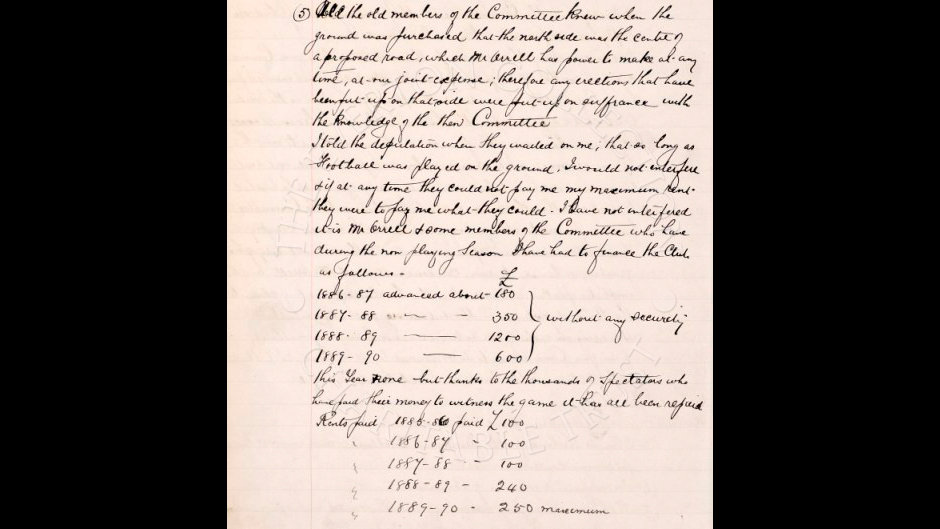 (5) All the old members of the Committee knew when the
ground was purchased that the north side was the centre of
a proposed road, which Mr Orrell has power to make at any
time, at our joint expense; therefore any erections that have
been put up on that side were put up on suffrance with
the knowledge of the then Committee
I told the deputation when they waited on me, that as long as
Football was played on the ground, I would not interfere
& if at any time they could not pay me my maximum rent
they were to pay me what they could. I have not interfered
it is Mr Orrell & some members of the Committee who have
during the non playing Season I have had to finance the Club
as follows - £
1886-87 advanced about 180
1887-88 — - 350 } without any security
1888-89 — - 1200
1889-90 — 600
this Year none but thanks to the thousands of Spectators who
have paid their money to witness the game it has all been repaid
Rents paid 1885-86 paid £100
" 1886-87 - 100
" 1887-88 - 100
" 1888-89 - 240
" 1889-90 - 250 maximum